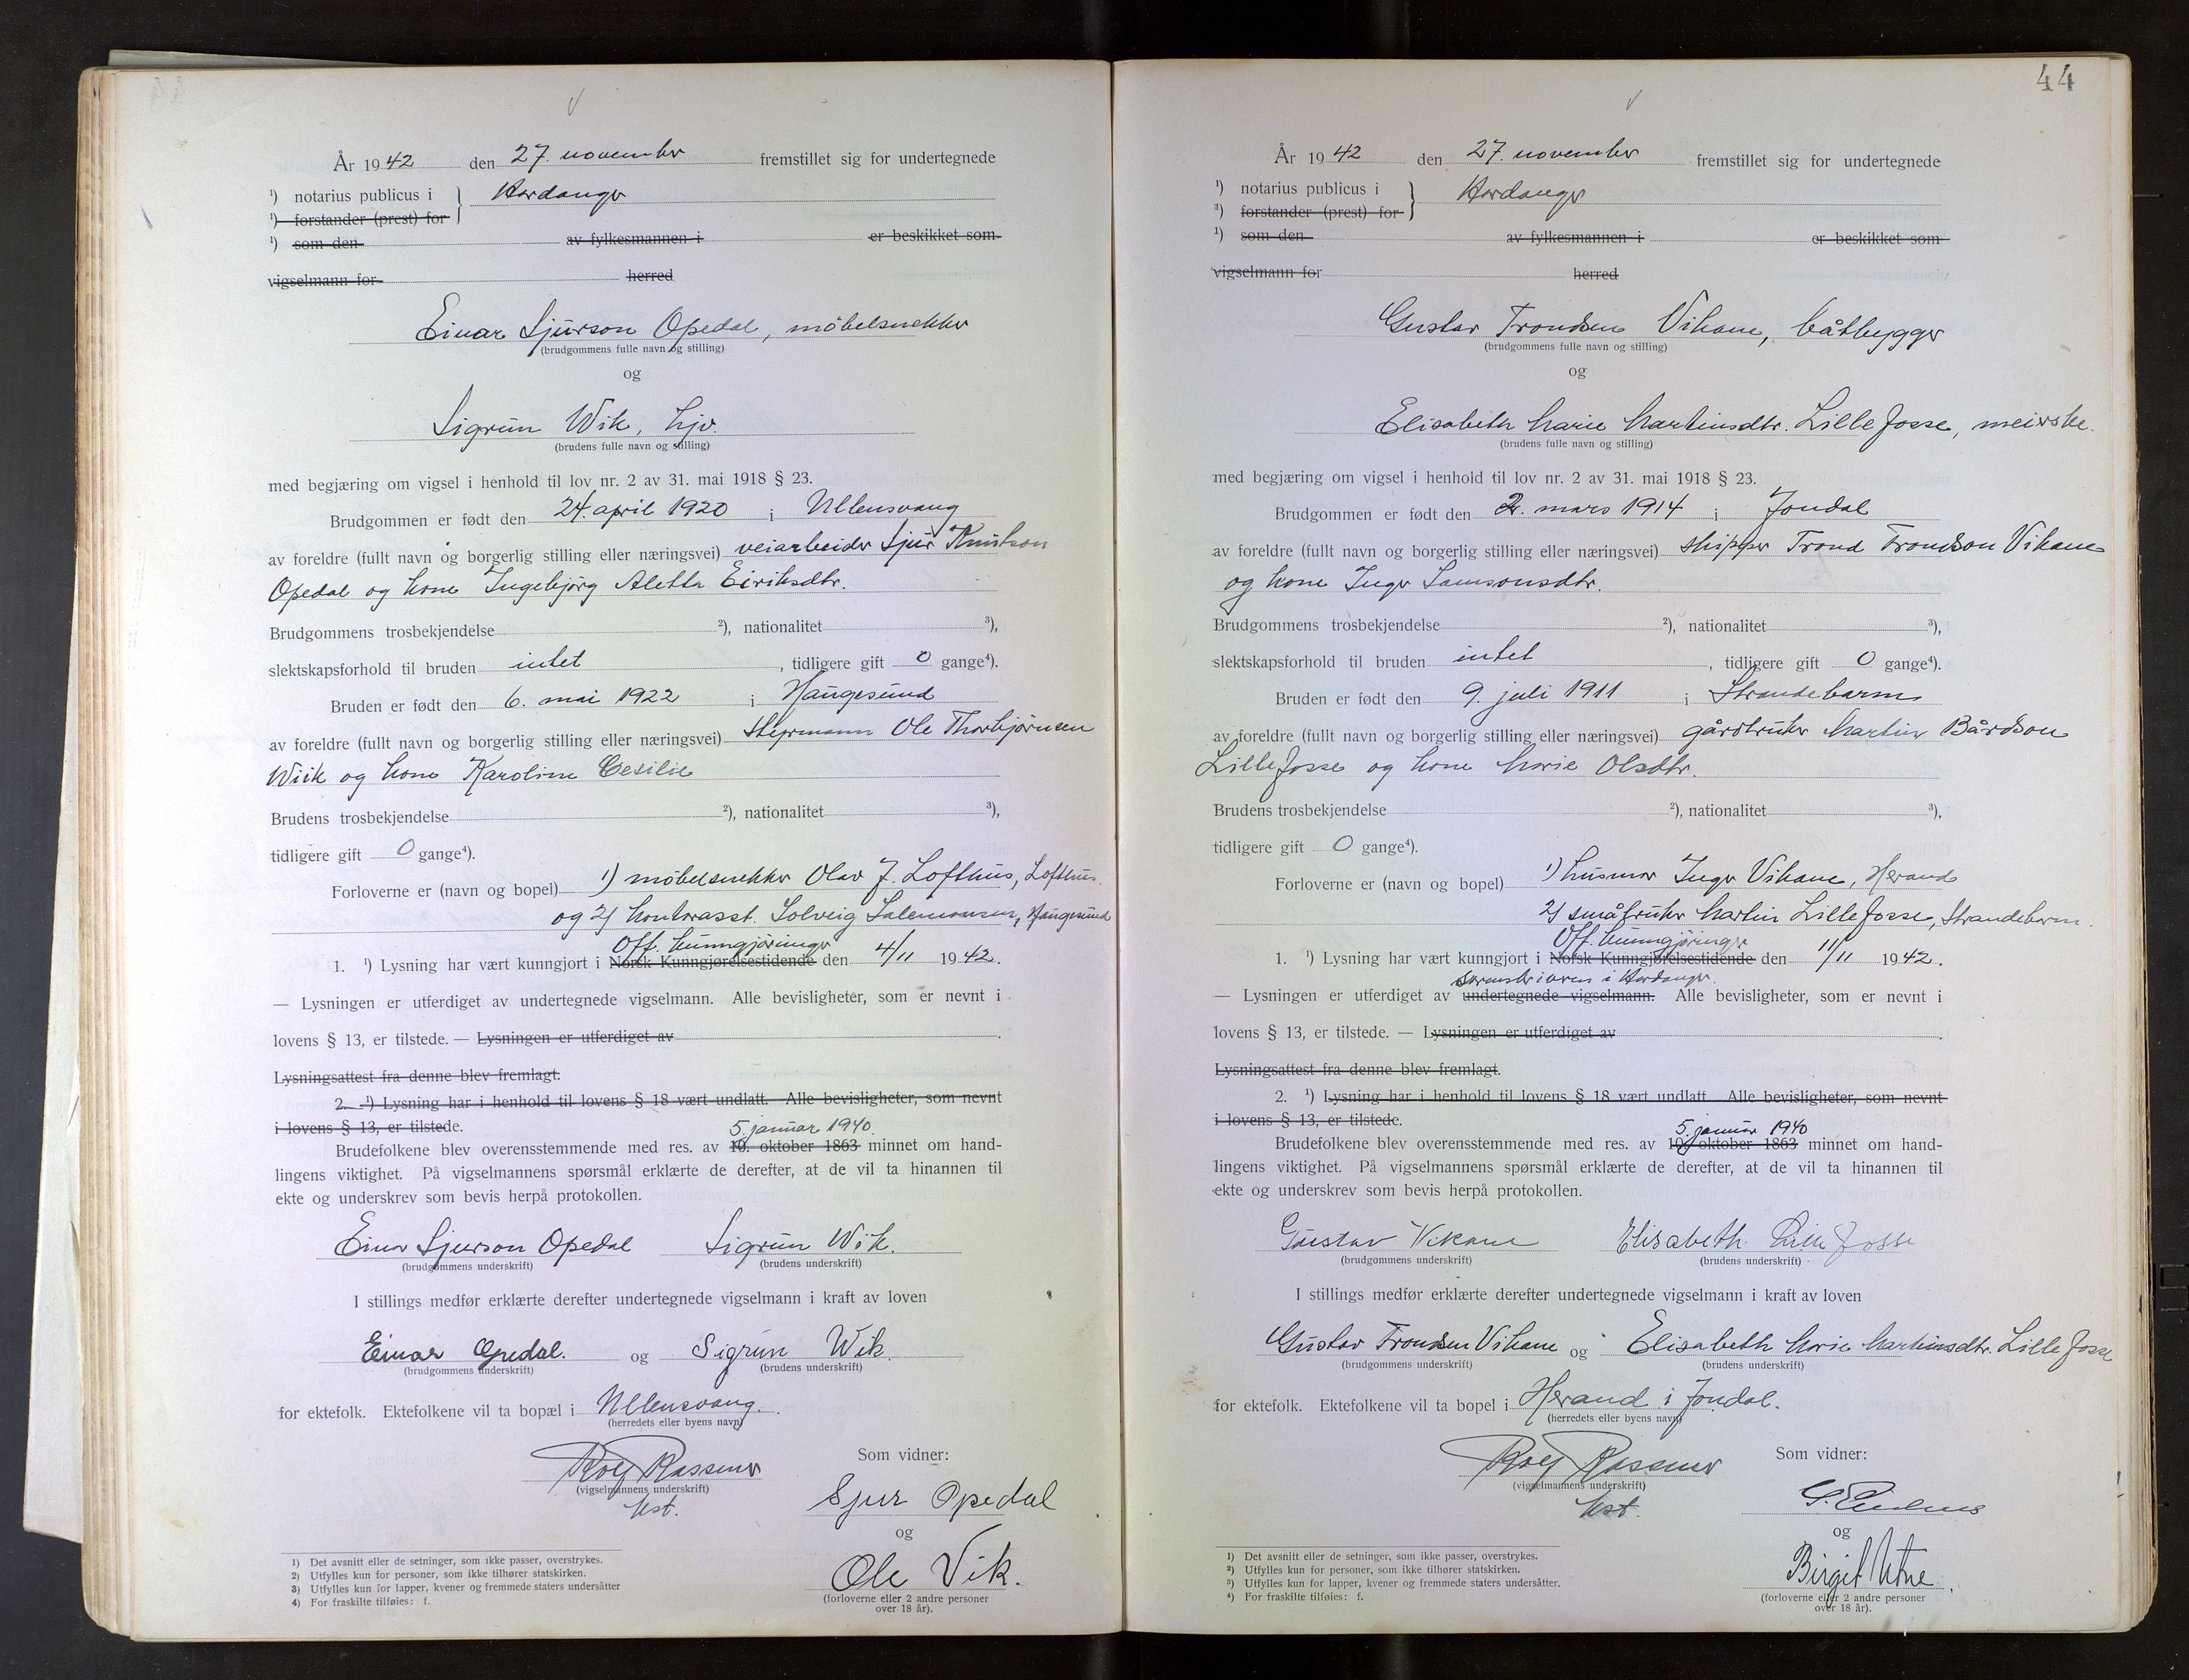 År 1942 den 27. november fremstillet sig for undertegnede
¹) notarius publicus i } Hardanger
¹) forstander (prest) for
¹) som den av fylkesmannen i er beskikket som
vigselmann for herred
Einar Sjurson Opedal, møbelsnekker
(brudgommens fulle navn og stilling)
og
Sigrun Wik, hjv.
(brudens fulle navn og stilling)
med begjæring om vigsel i henhold til lov nr. 2 av 31. mai 1918 § 23.
Brudgommen er født den 24. april 1920 i Ullensvang
av foreldre (fullt navn og borgerlig stilling eller næringsvei) veiarbeider Sjur Knutson
Opedal og kone Ingebjørg Aletta Eiriksdtr.
Brudgommens trosbekjendelse ²), nationalitet ³),
slektskapsforhold til bruden intet, tidligere gift 0 gange⁴).
Bruden er født den 6. mai 1922 i Haugesund
av foreldre (fullt navn og borgerlig stilling eller næringsvei) styrmann Ole Thorbjørnsen
Wiik og kone Karoline Cesilie
Brudens trosbekjendelse ²), nationalitet ³),
tidligere gift 0 gange⁴).
Forloverne er (navn og bopel) 1) møbelsnekker Olav J. Lofthus, Lofthus.
og 2) kontorasst. Solveig Salemonsen, Haugesund
Off. kunngjøringer
1. ¹) Lysning har vært kunngjort i Norsk Kunngjørelsestidende den 4/11 1942.
— Lysningen er utferdiget av undertegnede vigselmann. Alle bevisligheter, som er nevnt i
lovens § 13, er tilstede. — Lysningen er utferdiget av .
Lysningsattest fra denne blev fremlagt.
2. ¹) Lysning har i henhold til lovens § 18 vært undlatt. Alle bevisligheter, som nevnt
i lovens § 13, er tilstede.
5. januar 1940.
Brudefolkene blev overensstemmende med res. av 10. oktober 1863 minnet om hand-
lingens viktighet. På vigselmannens spørsmål erklærte de derefter, at de vil ta hinannen til
ekte og underskrev som bevis herpå protokollen.
Einar Sjurson Opedal Sigrun Wik.
(brudgommens underskrift) (brudens underskrift)
I stillings medfør erklærte derefter undertegnede vigselmann i kraft av loven
Einar Opedal. og Sigrun Wik.
(brudgommens underskrift) (brudens underskrift)
for ektefolk. Ektefolkene vil ta bopæl i Ullensvang.
(herredets eller byens navn)
Rolf Rassmer
(vigselmannens underskrift)
kst.
Som vidner:
Sjur Opedal
og
Ole Vik.
(forloverne eller 2 andre personer
over 18 år).
1) Det avsnitt eller de setninger, som ikke passer, overstrykes.
2) Utfylles kun for personer, som ikke tilhører statskirken.
3) Utfylles kun for lapper, kvener og fremmede staters undersåtter
4) For fraskilte tilføies: f.
44
År 1942 den 27. november fremstillet sig for undertegnede
¹) notarius publicus i } Hardanger
¹) forstander (prest) for
¹) som den av fylkesmannen i er beskikket som
vigselmann for herred
Gustav Trondsen Vikane, båtbygger
(brudgommens fulle navn og stilling)
og
Elisabeth Marie Martinsdtr. Lille Josse, meierske.
(brudens fulle navn og stilling)
med begjæring om vigsel i henhold til lov nr. 2 av 31. mai 1918 § 23.
Brudgommen er født den 2. mars 1914 i Jondal
av foreldre (fullt navn og borgerlig stilling eller næringsvei) skipper Trond Trondson Vikane
og kone Inger Samsonsdtr.
Brudgommens trosbekjendelse ²), nationalitet ³),
slektskapsforhold til bruden intet, tidligere gift 0 gange⁴).
Bruden er født den 9. juli 1911 i Strandebarm
av foreldre (fullt navn og borgerlig stilling eller næringsvei) gårdbruker Martin Bårdson
Lille Josse og kone Marie Olsdtr.
Brudens trosbekjendelse ²), nationalitet ³),
tidligere gift 0 gange⁴).
Forloverne er (navn og bopel) 1) husmor Inger Vikane, Herand
2) småbruker Martin Lille Josse, Strandebarm.
Off. kunngjøringer
1. ¹) Lysning har vært kunngjort i Norsk Kunngjørelsestidende den 11/11 1942.
sorenskriveren i Hardanger.
— Lysningen er utferdiget av undertegnede vigselmann. Alle bevisligheter, som er nevnt i
lovens § 13, er tilstede. — Lysningen er utferdiget av .
Lysningsattest fra denne blev fremlagt.
2. ¹) Lysning har i henhold til lovens § 18 vært undlatt. Alle bevisligheter, som nevnt
i lovens § 13, er tilstede.
5. januar 1940
Brudefolkene blev overensstemmende med res. av 10. oktober 1863 minnet om hand-
lingens viktighet. På vigselmannens spørsmål erklærte de derefter, at de vil ta hinannen til
ekte og underskrev som bevis herpå protokollen.
Gustav Vikane Elisabeth Lille Josse
(brudgommens underskrift) (brudens underskrift)
I stillings medfør erklærte derefter undertegnede vigselmann i kraft av loven
Gustav Trondsen Vikane og Elisabeth Marie Martinsdtr. Lille Josse
(brudgommens underskrift) (brudens underskrift)
for ektefolk. Ektefolkene vil ta bopel i Herand i Jondal.
(herredets eller byens navn)
Rolf Rassmer
(vigselmannens underskrift)
kst.
Som vidner:
og
Birgit Utne.
(forloverne eller 2 andre personer
over 18 år).
1) Det avsnitt eller de setninger, som ikke passer, overstrykes.
2) Utfylles kun for personer, som ikke tilhører statskirken.
3) Utfylles kun for lapper, kvener og fremmede staters undersåtter.
4) For fraskilte tilføies: f.